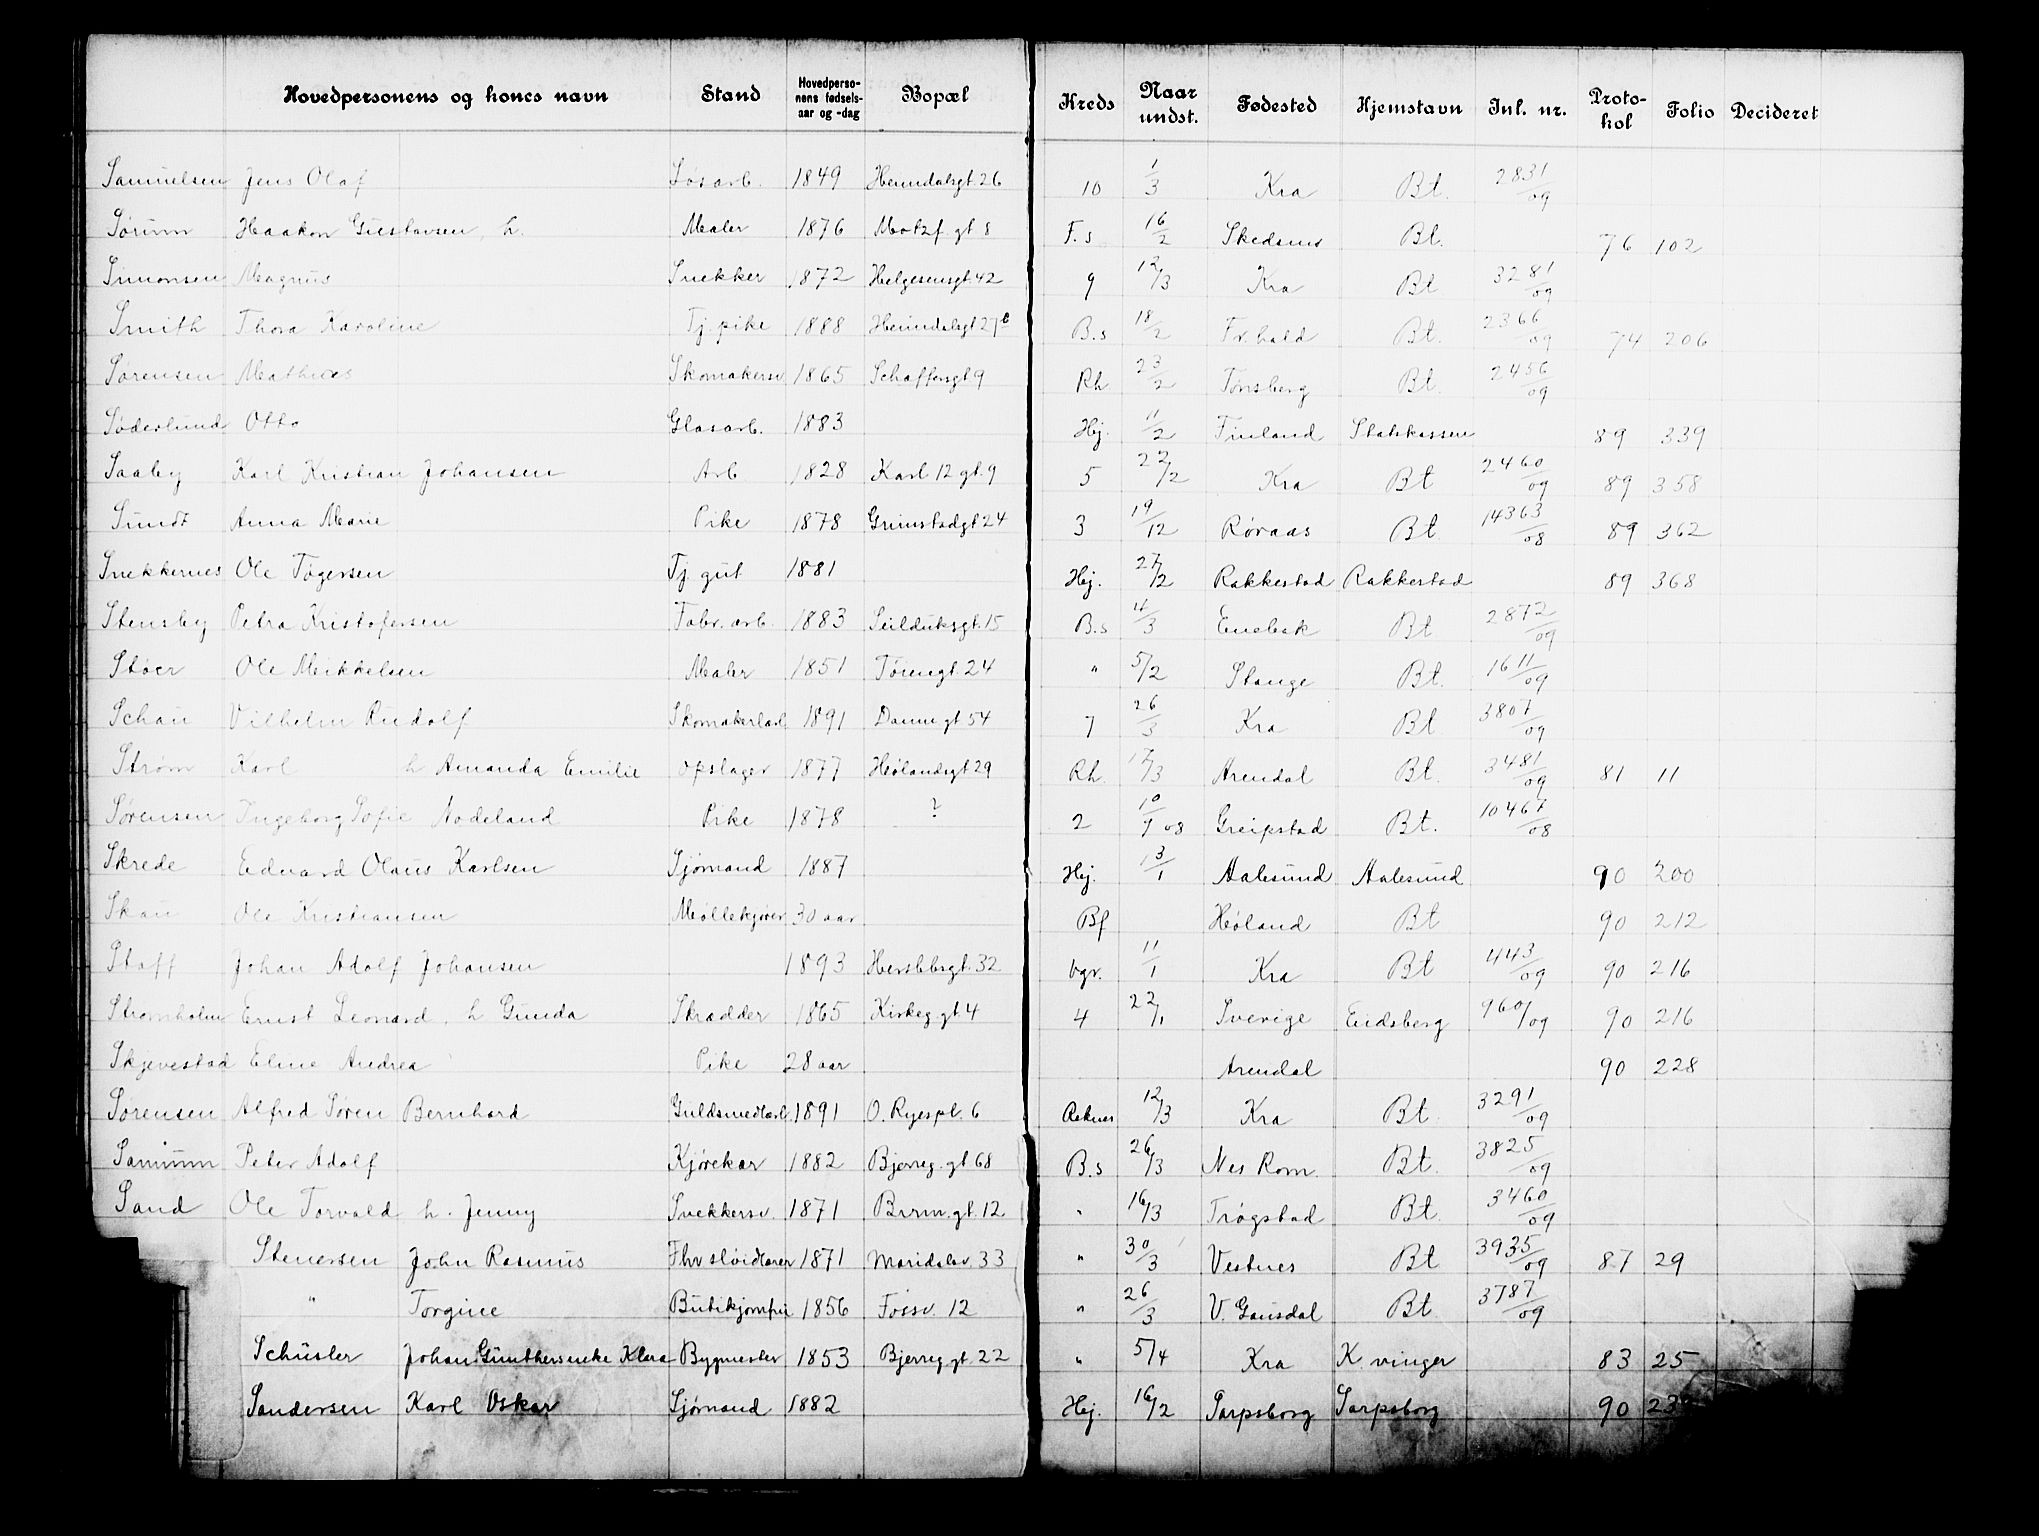 Hovedpersonens og kones navn Stand Hovedpersonens fødselsaar og -dag Bopæl Kreds Naar undst. Fødested Hjemstavn Inl. nr. Protokol Folio Decideret
Samuelsen Jens Olaf Løsarb. 1849 Heimdalsgt. 26 10 1/3 Kra Bt. 2831/09
Sørum Haakon Gustavsen, h. Maler 1876 Motzf. gt 8 F.s 16/2 Skedsmo Bt. 76 102
Simonsen Magnus Snekker 1872 Helgesensgt. 42 9 12/3 Kra Bt 3281/09
Smith Thora Karoline Tj. pike 1888 Heimdalsgt 27 B.s 18/2 Fr.hald Bt. 2366/09 74 206
Sørensen Mathias Skomakersv. 1865 Schaffersgt 9 Rh. 23/2 Tønsberg Bt. 2456/09
Søderlund Otto Glasarb. 1883 Hej. 11/2 Finland Statskassen 89 339
Saaby Karl Kristian Johansen Arb 1828 Karl 12 gt. 9 5 22/2 Kra Bt 2460/09 89 358
Sundt Anna Marie Pike 1878 Grimstadgt 24 3 19/12 Røraas Bt 14363/08 89 362
Snekkernes Ole Tøgersen Tj. gut 1881 Hej. 27/2 Rakkestad Rakkestad 89 368
Stensby Petra Kristofersen Fabr. arb. 1883 Seilduksgt. 15 B.s 4/3 Enebak Bt 2872/09
Støer Ole Mikkelsen Maler 1851 Tøiengt 24 " 5/2 Stange Bt. 1611/09
Schau Vilhelm Rudolf Skomakerlærl 1891 Danm. gt 54 7 26/3 Kra Bt. 3807/09
Strøm Karl h Amanda Emilie opslager 1877 Hølandsgt 29 Rh. 17/3 Arendal Bt. 3481/09 81 11
Sørensen Ingeborg Sofie Nodeland Pike 1878 ? 2 10/9 08 Greipstad Bt. 10467/08
Skrede Edvard Olaus Karlsen Sjømand 1887 Hej. 13/1 Aalesund Aalesund 90 200
Skau Ole Kristiansen Møllekjører 30 aar Bf Høland Bt 90 212
Staff Johan Adolf Johansen 1893 Herslebsgt. 32 Vgr. 11/1 Kra Bt 443/09 90 216
Strømholm Ernst Leonard, h Gunda Skrædder 1865 Kirkeg. gt 4 4 22/1 Sverige Eidsberg 960/09 90 216
Skjevestad Eline Andrea Pike 28 aar Arendal 90 228
Sørensen Alfred Søren Bernhard Guldsmedlærl. 1891 O. Ryespl. 6 Aaknes 12/3 Kra Bt 3291/09
Peter Adolf Kjørekar 1882 Bjerreg. gt 68 B.s 26/3 Nes Rom. Bt. 3825/09
Sand Ole Torvald h. Jenny Snekkersv. 1871 gt. 12 " 16/3 Trøgstad Bt. 3460/09
Stenersen John Rasmus Fhv sløidlærer 1871 Maridalsv. 33 " 30/3 Vestnes Bt 3935/09 87 29
" Torgine Butikjomfru 1856 Fossv. 12 " 26/3 V. Gausdal Bt. 3787/09
Schüsler Johan Klara Bygmester 1853 Bjerreg. gt. 22 " 5/4 Kra K.vinger 83 25
Sandersen Karl Oskar Sjømand 1882 Hej. 16/2 Sarpsborg Sarpsborg 90